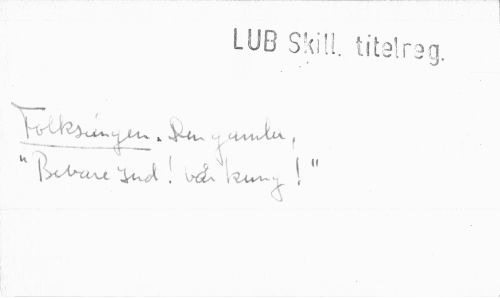 LUB Skill. titelreg.
Folksången. Den gamla,
"Bevare Gud! vår kung!"